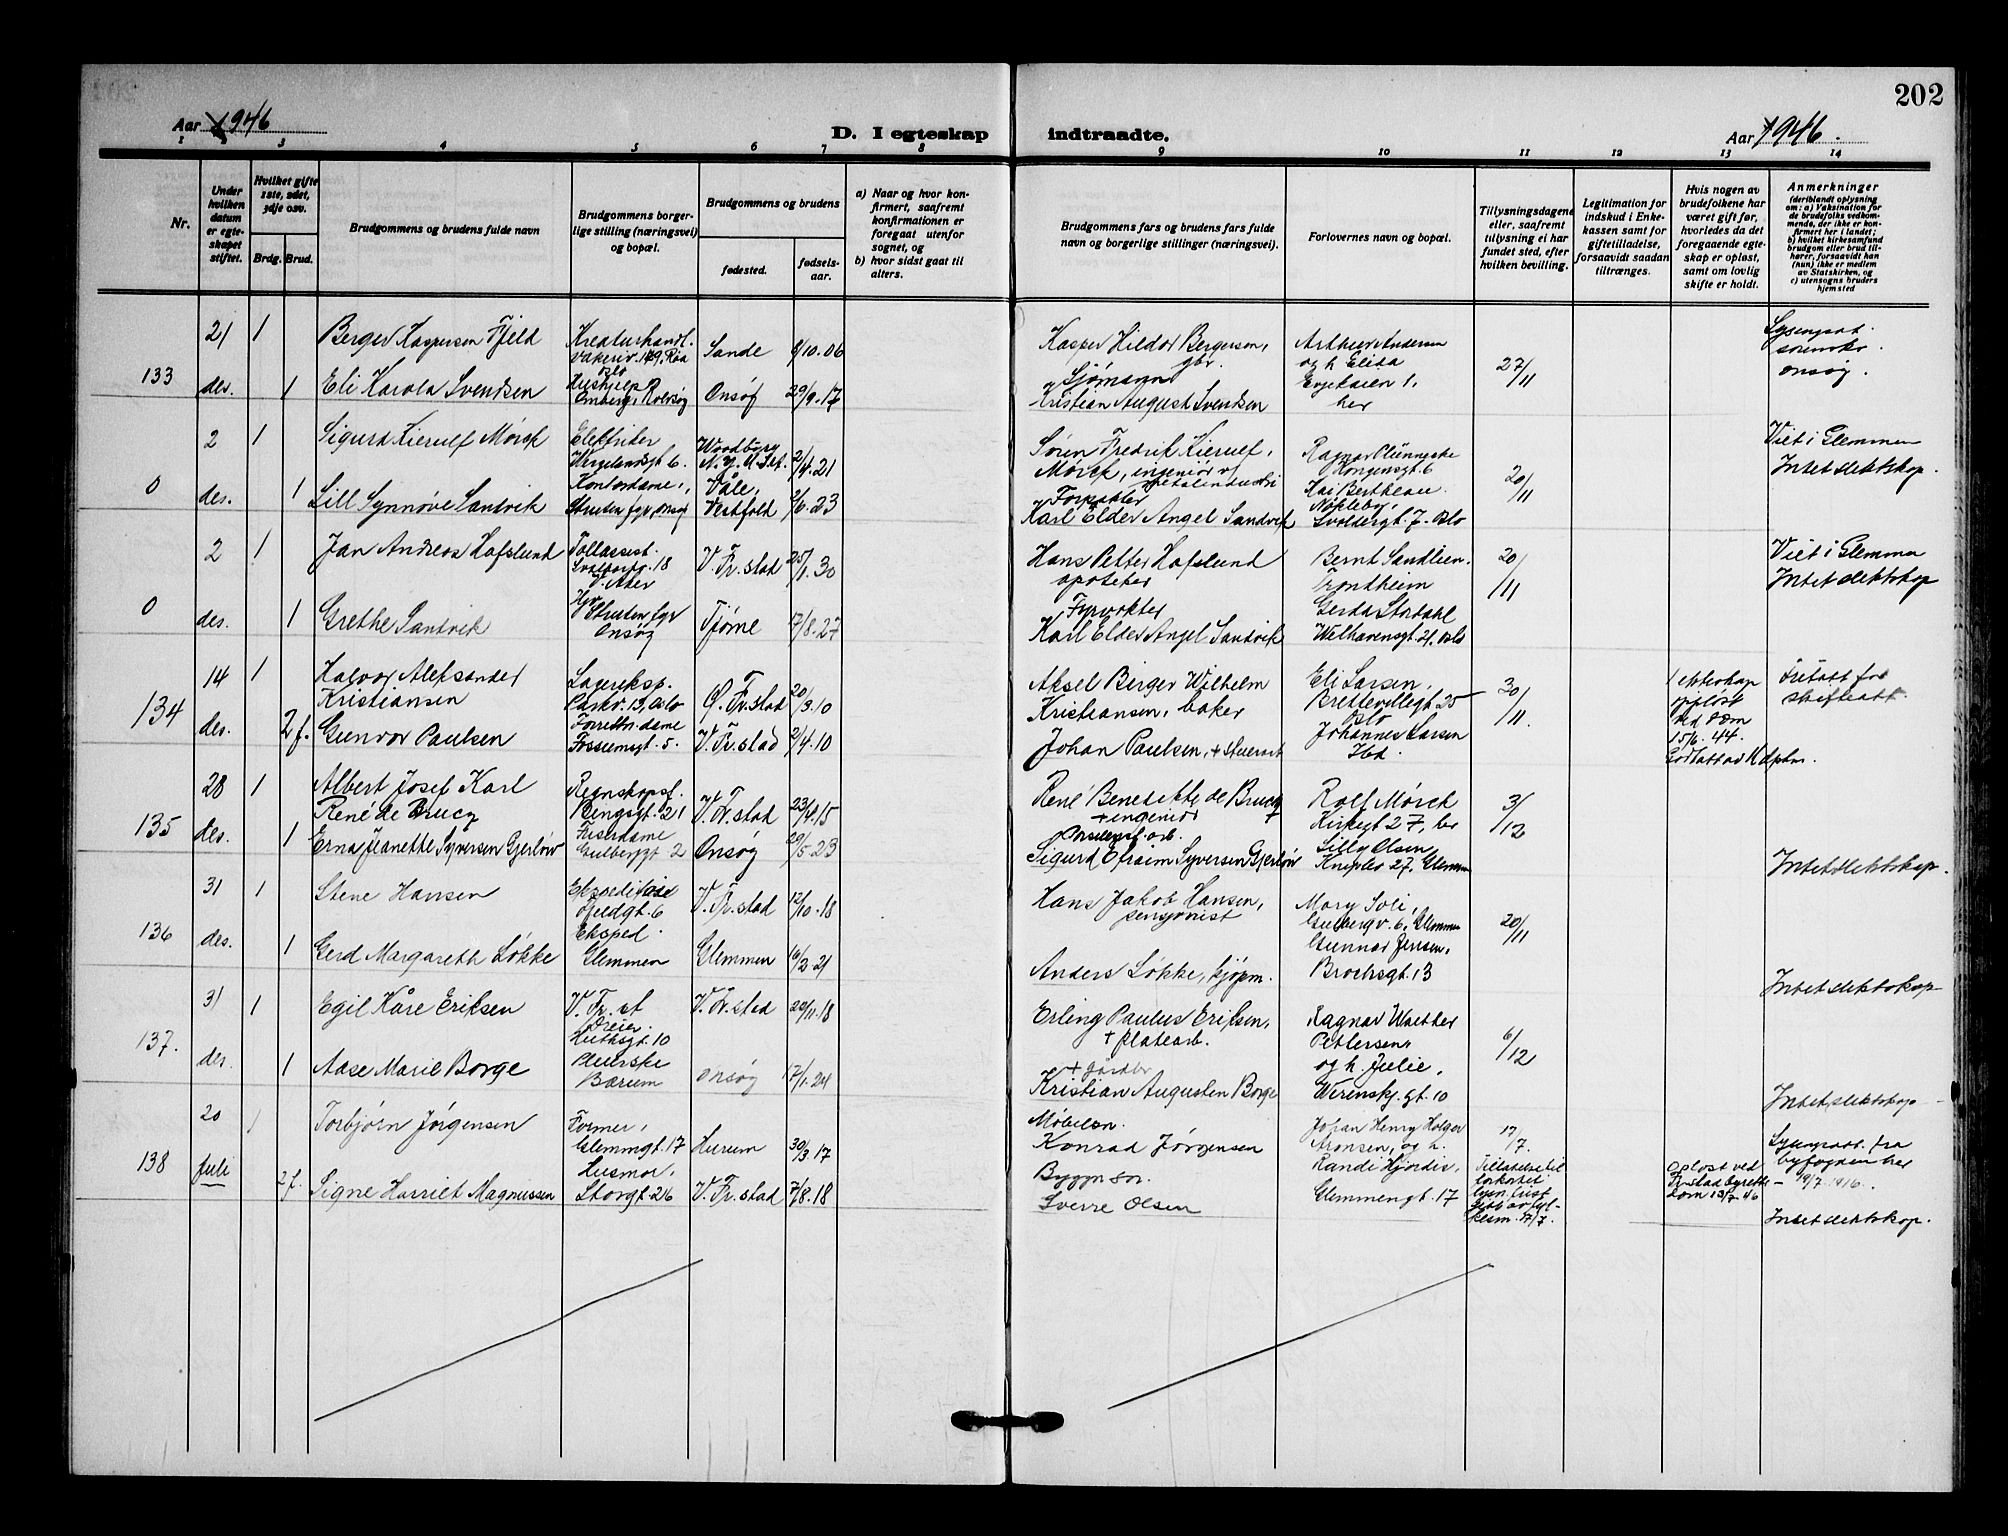 202
Aar 1946
D. I egteskap indtraadte.
Aar 1946.
1 2 3 4 5 6 7 8 9 10 11 12 13 14
Nr.
Under hvilken datum er egteskapet stiftet.
Hvilket gifte 1ste, 2det, 3dje osv.
Brdg. Brud.
Brudgommens og brudens fulde navn
Brudgommens borgerlige stilling (næringsvei) og bopæl.
Brudgommens og brudens
fødested.
fødselsaar.
a) Naar og hvor konfirmert, saafremt konfirmationen er foregaat utenfor sognet, og
b) hvor sidst gaat til alters.
Brudgommens fars og brudens fars fulde navn og borgerlige stillinger (næringsvei).
Forlovernes navn og bopæl.
Tillysningsdagene eller, saafremt tillysning ei har fundet sted, efter hvilken bevilling.
Legitimation for indskud i Enkekassen samt for giftetilladelse, forsaavidt saadan tiltrænges.
Hvis nogen av brudefolkene har været gift før, hvorledes da det foregaaende egteskap er opløst, samt om lovlig skifte er holdt.
Anmerkninger
(deriblandt oplysning om: a) Vaksination for de brudefolks vedkommende, der ikke er konfirmert her i landet; b) hvilket kirkesamfund brudgom eller brud tilhører, forsaavidt han (hun) ikke er medlem av Statskirken, og c) utensogns bruders hjemsted
133
21 des.
1
Berger Kaspersen Fjeld
Kreaturhandl.
Sande
9/10.06
Kasper Hildor Bergersen, gbr.
og h Elida
her
27/11
onsøy.
1
Eli Karola Svendsen
Onsøy
29/9.17
Sjømann
Kristian August Svendsen
0
2 des.
1
Sigurd Kierulf Mørch
Elektriker
Wergelandsgt 6.
2/4.21
Søren Fredrik Kierulf Mørch, ingeniør
Kongensgt. 6
20/11
Viet i Glemmen
Intet slektskap.
1
Lill Synnøve Sandvik
Kontordame,
Struten fyr, Onsøy
Våle, Vestfold
2/6.23
Karl Elder Angel Sandvik
Svoldergt. 7. Oslo
0
2 des.
1
Jan Andreas Hafslund
Tollassist.
V. Fr.stad
25/1.30
Hans Petter Hafslund
apoteker
Bernt Sandlien.
Trondheim
20/11
Viet i Glemmen
Intet slektskap
1
Grethe Sandvik
Struten fyr
Onsøy
Tjøme
17/8.27
Fyrvokter
Karl Elder Angel Sandvik
Gerda Stordahl
Welhavensgt. 21. Oslo
134
14 des.
1
Halvor Aleksander Kristiansen
Lagereksp.
Parkv. 13, Oslo
Ø. Fr.stad
20/3.10
Aksel Berger Wilhelm Kristiansen, baker
Eli Larsen,
Oslo
30/11.
1 ekteskap oppløst ved dom 15/6.44.
2 f.
Gunvor Paulsen
Fossumsgt. 5.
V. Fr.stad
2/4.10
Johan Paulsen, + stuerart
Johannes Larsen
Ibd.
135
28 des.
1
Albert Josef Karl René de Brucq
V. Fr.stad
23/4.15
René Benedikte de Brucq
+ ingeniør
Rolf Mørch
Kirkegt 27, her
3/12
1
Erna Jeanette Syversen Gjerløw
Frisørdame
Gulbergt 2
Onsøy
29/5.23
Sigurd Efraim Syversen Gjerløw
Lilly Olsen
27, Glemmen
Intet slektskap.
136
31 des.
1
Stene Hansen
V. Fr.stad
12/10.18
Hans Jakob Hansen, pensjonist
Mary Soli,
Gulbergv. 6, Glemmen
20/11
1
Gerd Margareth Løkke
Eksped.
Glemmen
Glemmen
16/2 21
Anders Løkke, kjøpm.
Gunnar Jensen,
Brochsgt. 13
Intet slektskap
137.
31 des.
1
Egil Kåre Eriksen
V. Fr. st
Dreier.
Huthsgt. 10
V. Fr.stad
20/11.18
Erling Paulus Eriksen,
+ platearb.
Ragnar Walther Pettersen,
og h. Julie,
6/12
1
Aase Marie Borge
Bærum
Onsøy
17/1.24
Kristian Augusten Borge
Werenskj. gt. 10
Intet slektskap
138
20 Juli
1
Torbjørn Jørgensen
Former,
Glemmgt. 17
Hurum
30/3.17
Konrad Jørgensen
Johan Henry Holger Aronsen, og h.
Randi Hjørdis,
Glemmengt. 17
17/7.
Oppløst ved Fr.stad byretts dom 13/7.46
byfogden her
2 f.
Signe Harriet Magnussen
Husmor,
Storgt. 26
V. Fr.stad
7/8.18
Sverre Olsen
Intet slektskap.